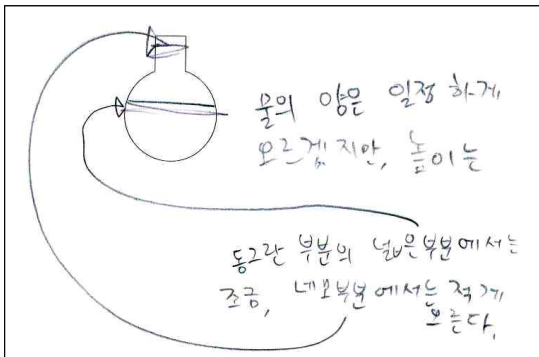 물의 양은 일정 하게
오르겠지만, 높이는
동그란 부분의 넓은부분에서는
조금, 네모부분에서는 적게
오른다.